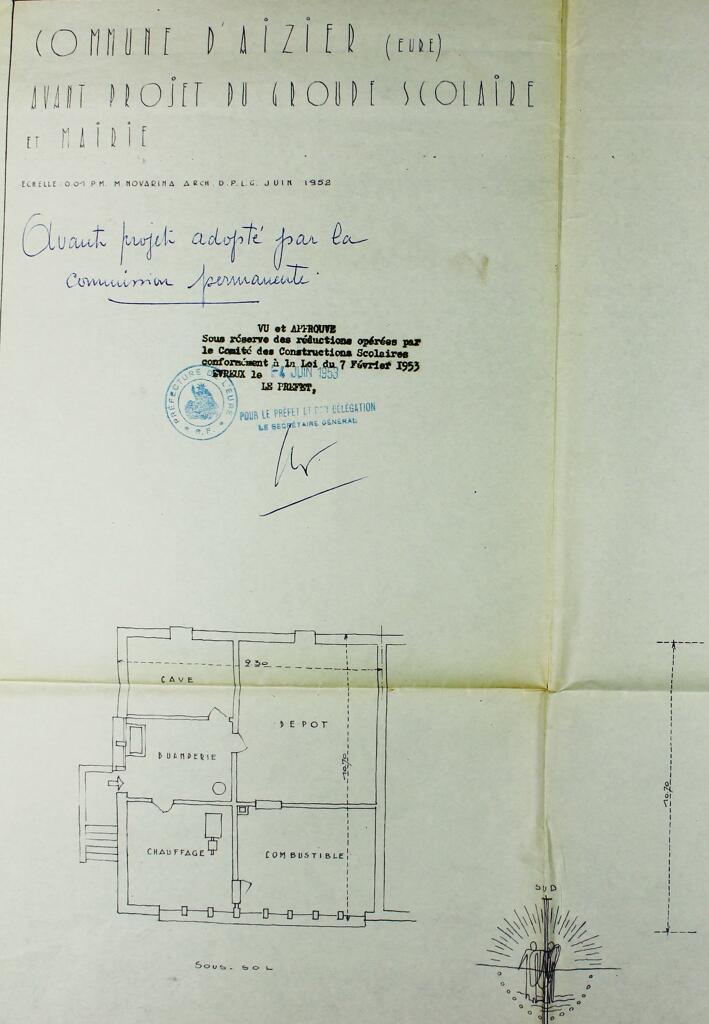 COMMUNE D'AIZIER (EURE)
AVANT PROJET DU GROUPE SCOLAIRE
ET MAIRIE
ECHELLE 0.01 P.M. M. NOVARINA ARCH. D.P.L.G. JUIN 1952
Avant projet adopté par la
commission permanente.
VU et APPROUVE
Sous réserve des réductions opérées par
le Comité des Constructions Scolaires
conformément à la Loi du 7 Février 1953
EVREUX le -4 JUIN 1953
LE PREFET,
PRÉFECTURE DE L'EURE
R.F.
POUR LE PRÉFET ET PAR DÉLÉGATION
LE SECRÉTAIRE GÉNÉRAL
9.30
CAVE
DEPOT
BUANDERIE
10.70
10.70
CHAUFFAGE
COMBUSTIBLE
SUD
SOUS-SOL